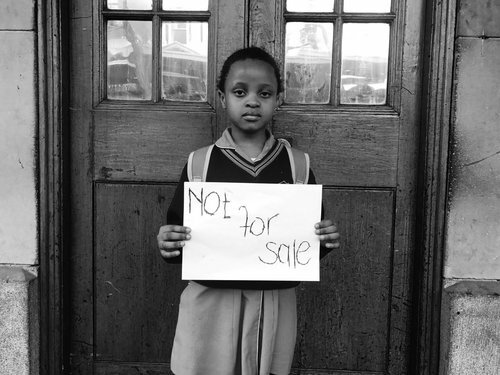 Not
for
sale